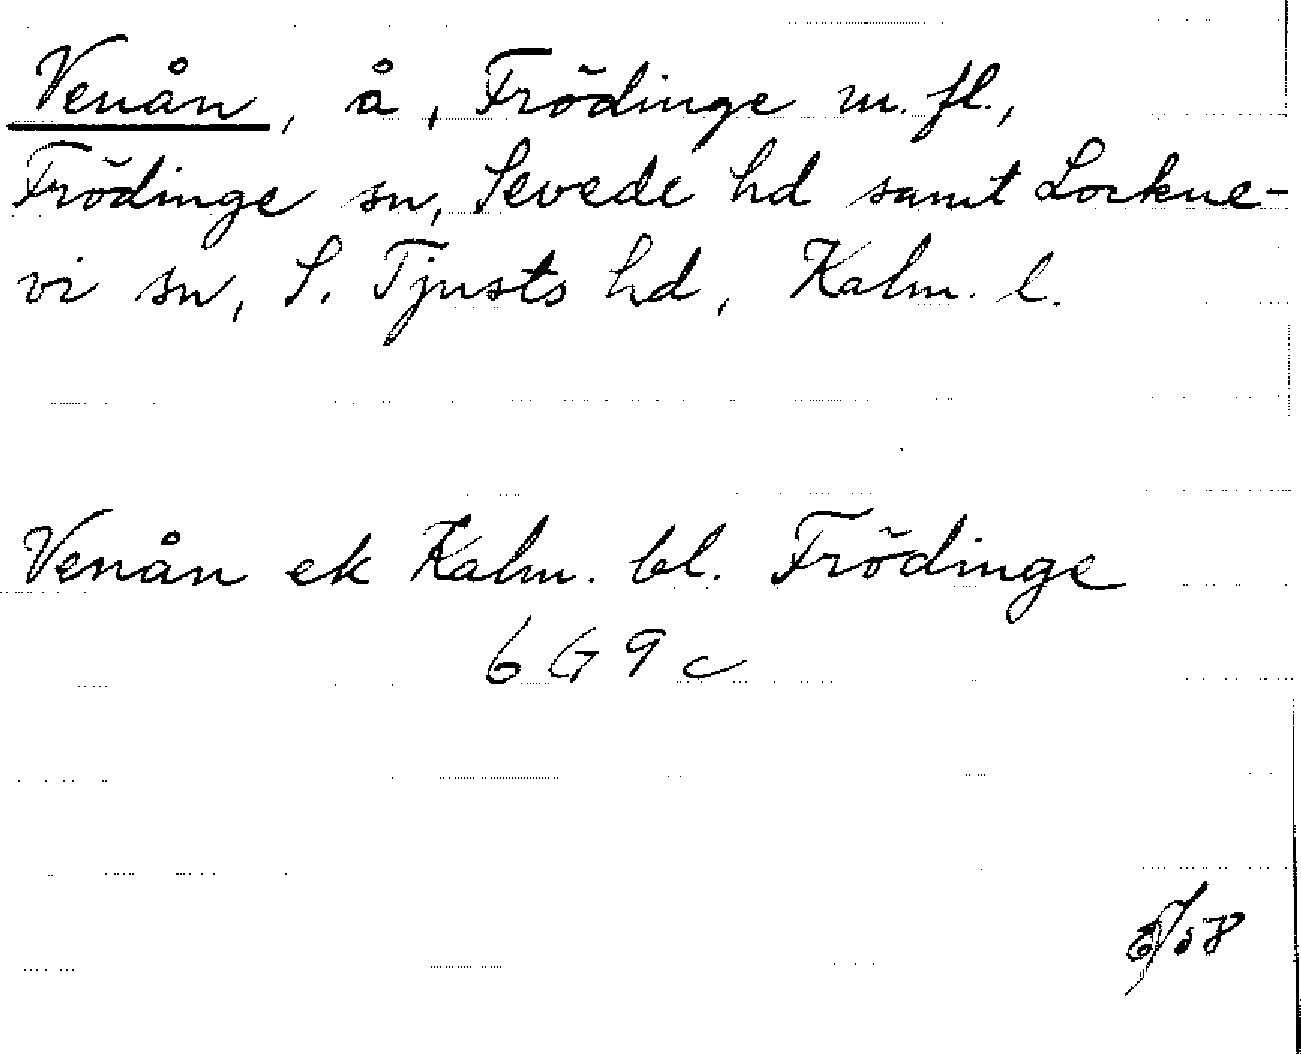 Venån, å, Frödinge m. fl.,
Frödinge sn, Sevede hd samt Lockne-
vi sn, S. Tjusts hd, Kalm. l.
Venån ek Kalm. bl. Frödinge
6 G 9 c